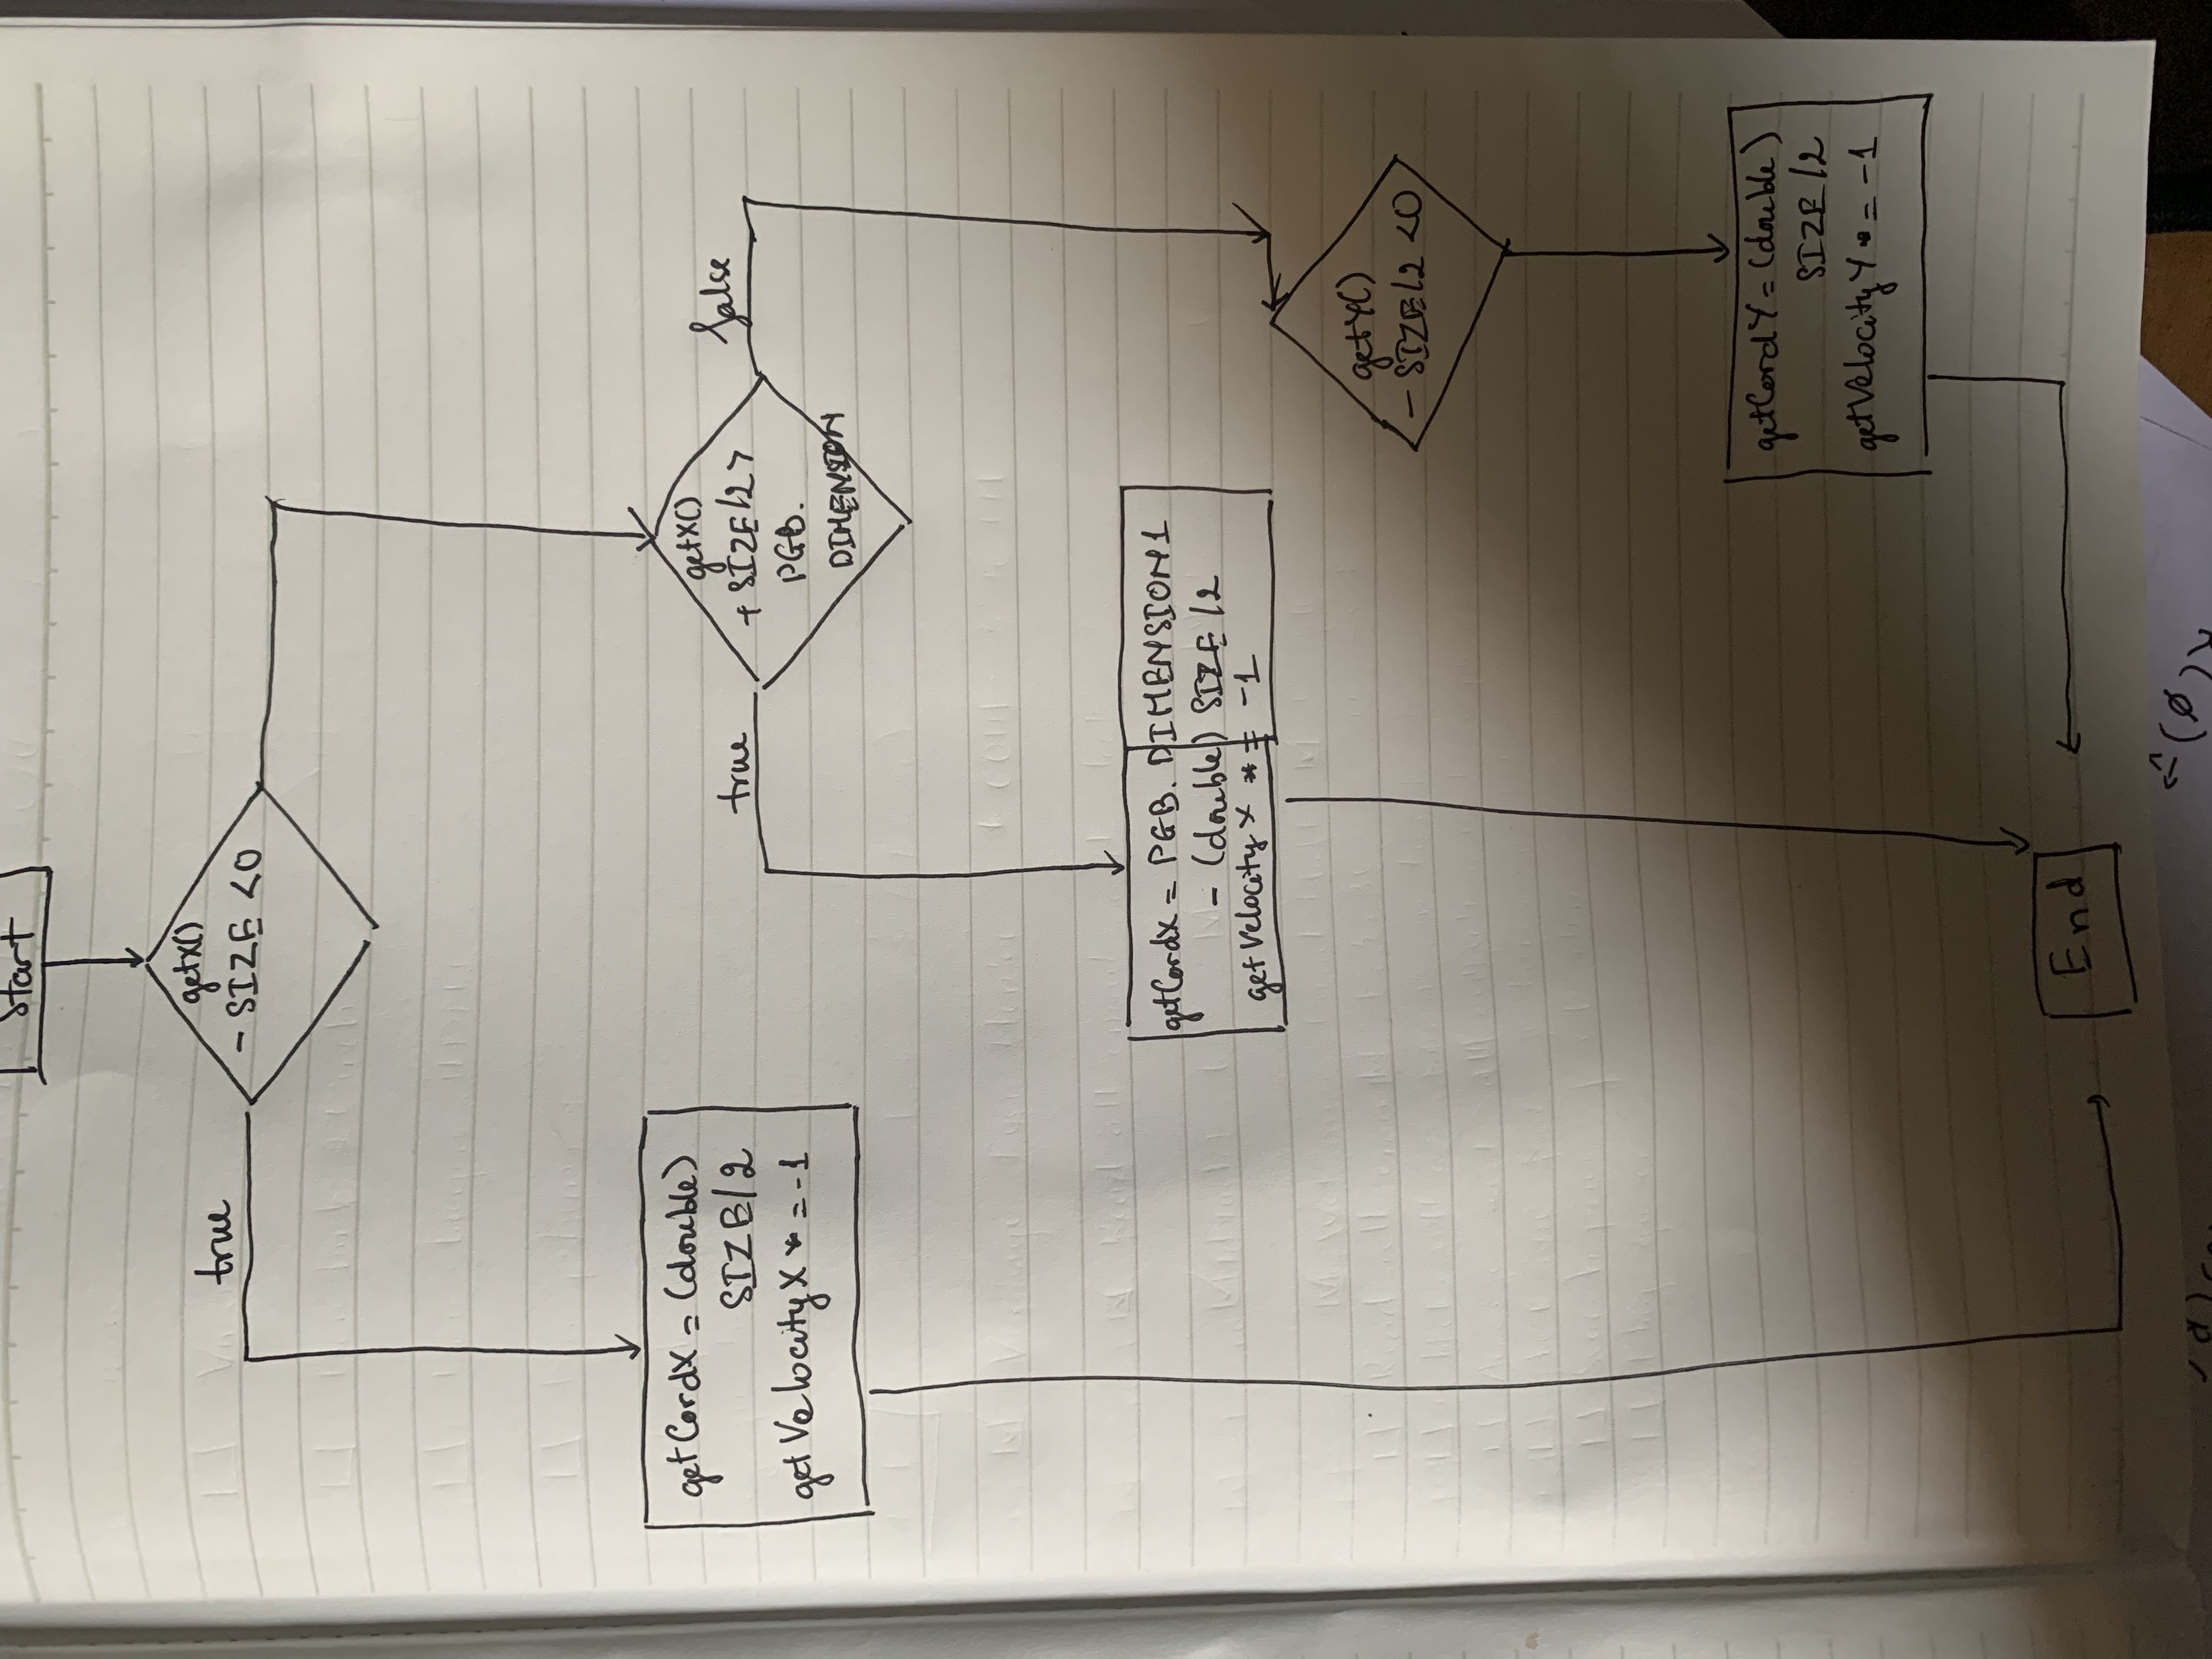 Start
getX()
- SIZE <0
true
getCordX = (double)
SIZE/2
getVelocityX * = -1
getX()
+ SIZE/2 >
PGB.
DIMENSION
true
false
getCordX = PGB. DIMENSION1
- (double) SIZE /2
getVelocity X * = -1
getY()
- SIZE/2 <0
getCordY = (double)
SIZE /2
getVelocityY * = -1
End